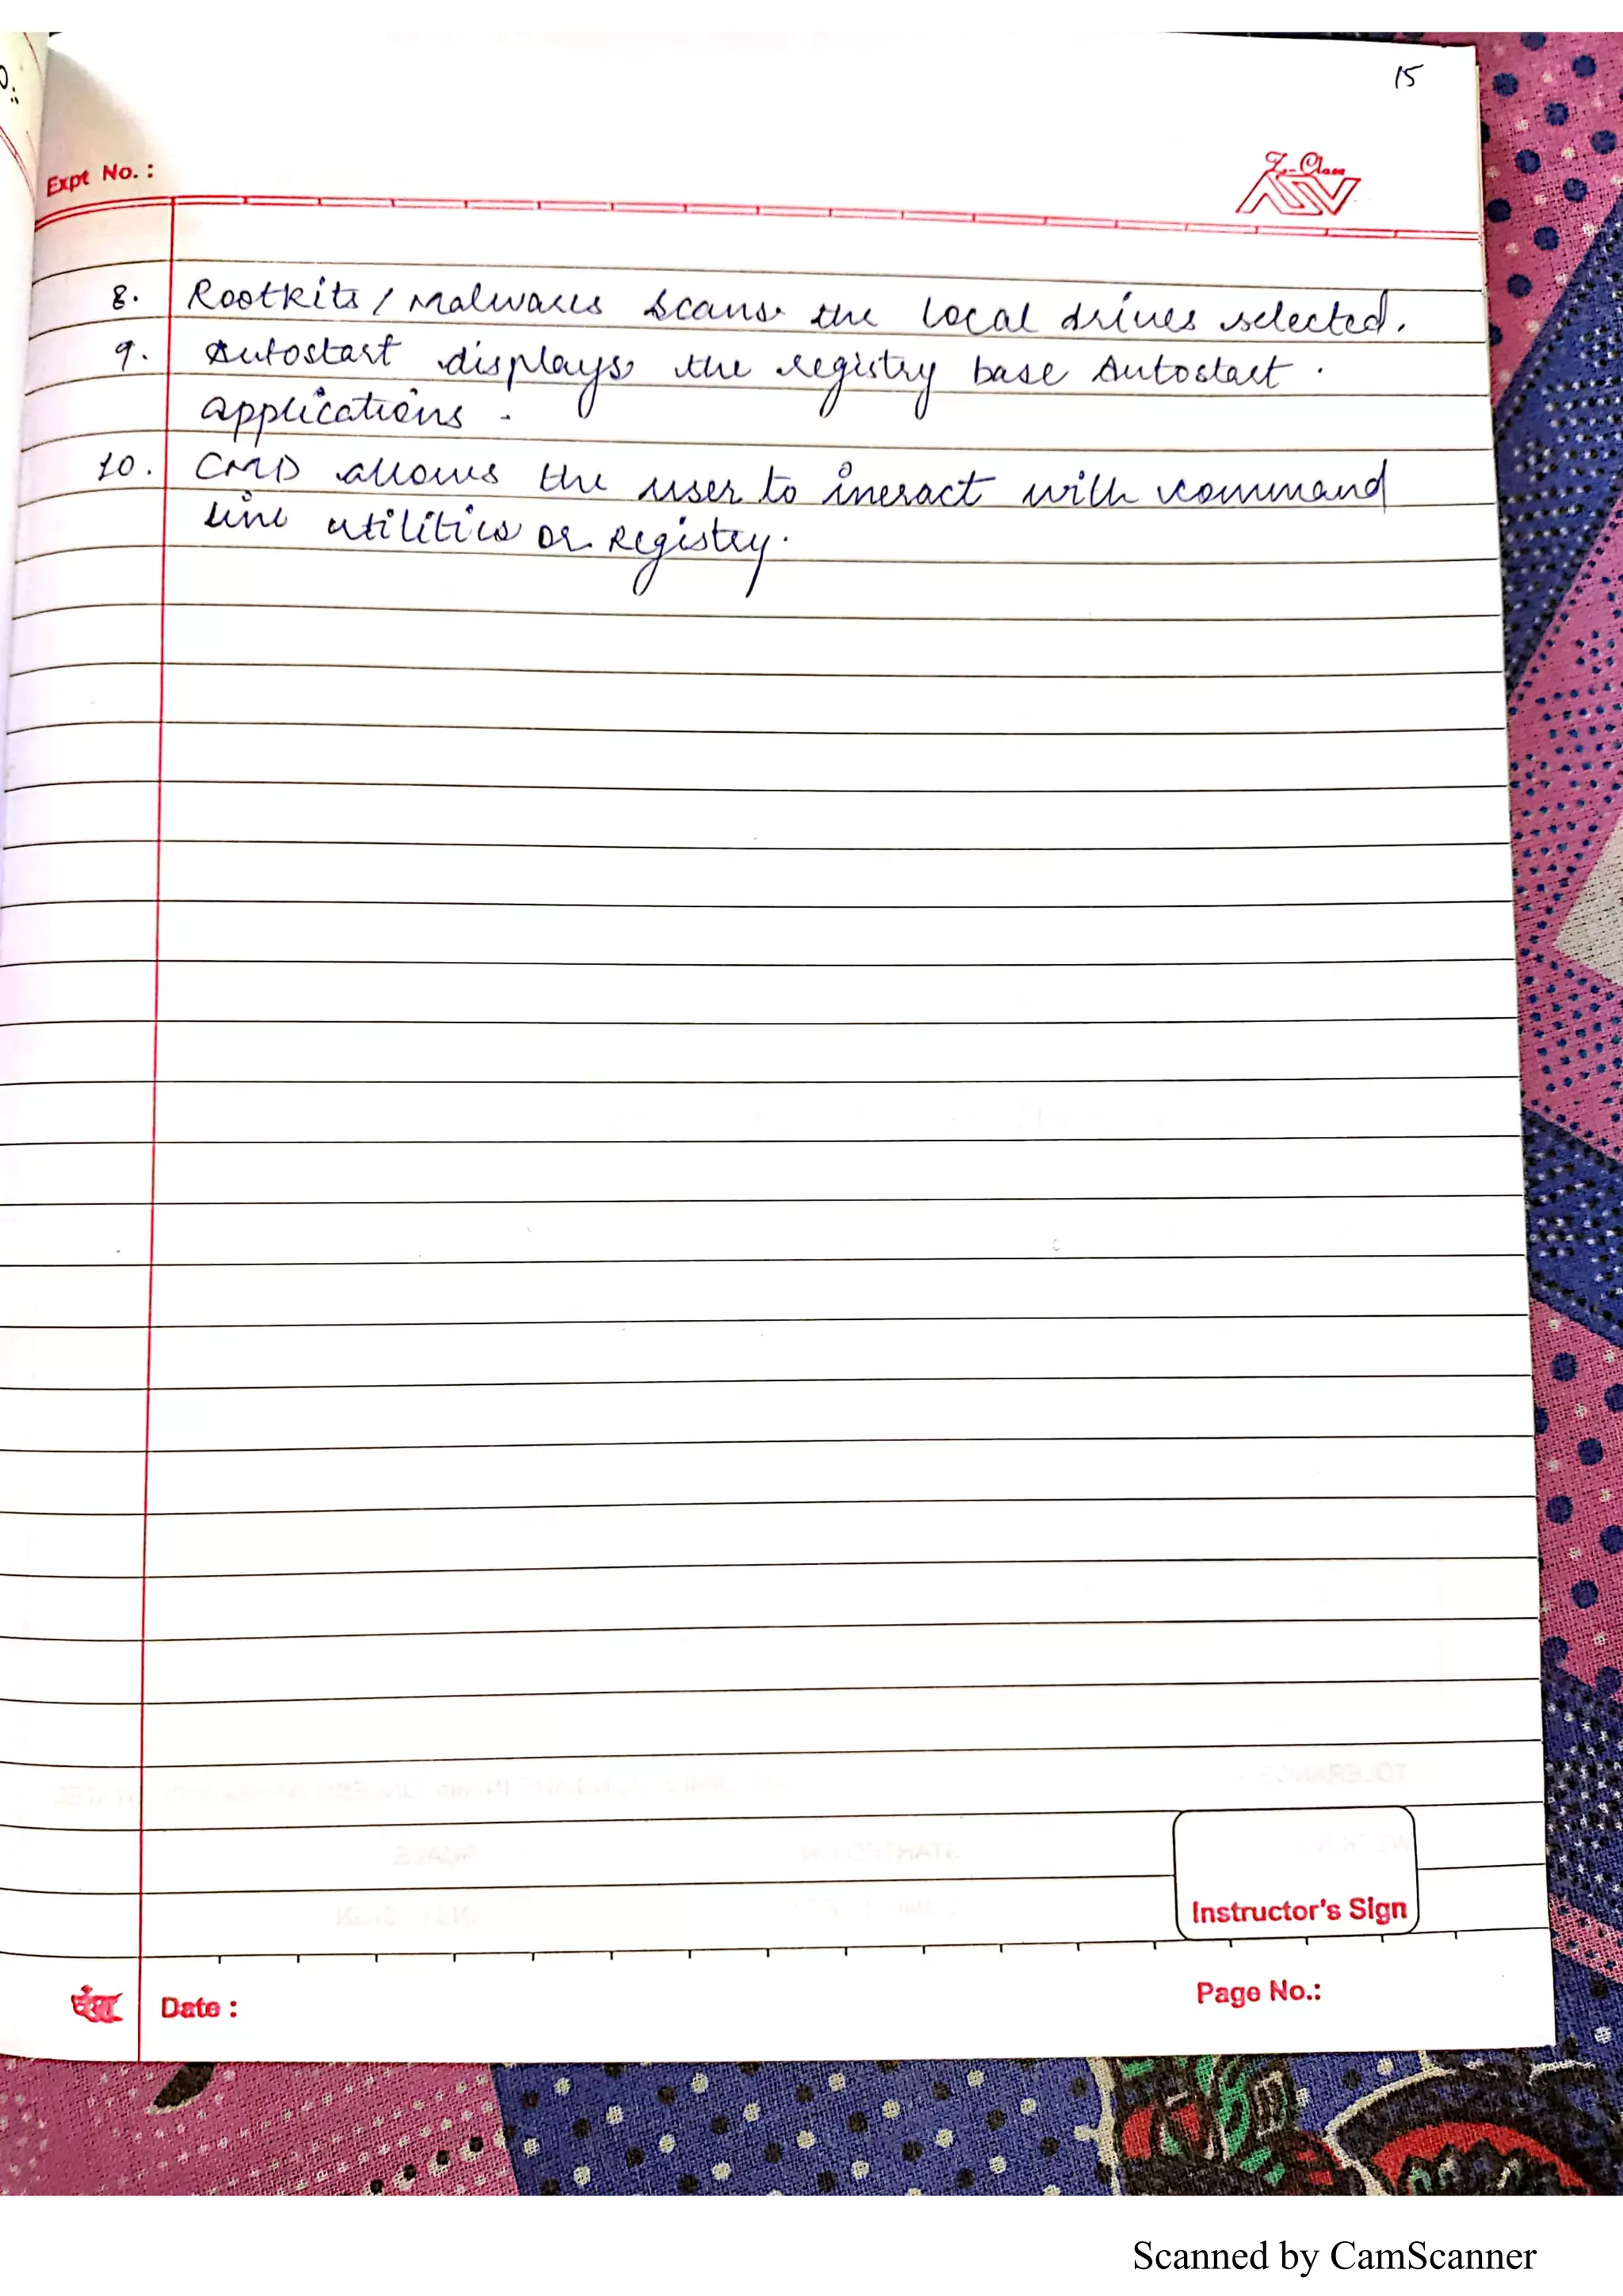 15
Expt No. :
Z-Class
8. Rootkits / Malwares scans the local drives selected.
9. Autostart displays the registry base Autostart
applications.
10. CMD allows the user to ineract with command
line utilities or Registry.
Instructor's Sign
Date :
Page No.:
Scanned by CamScanner